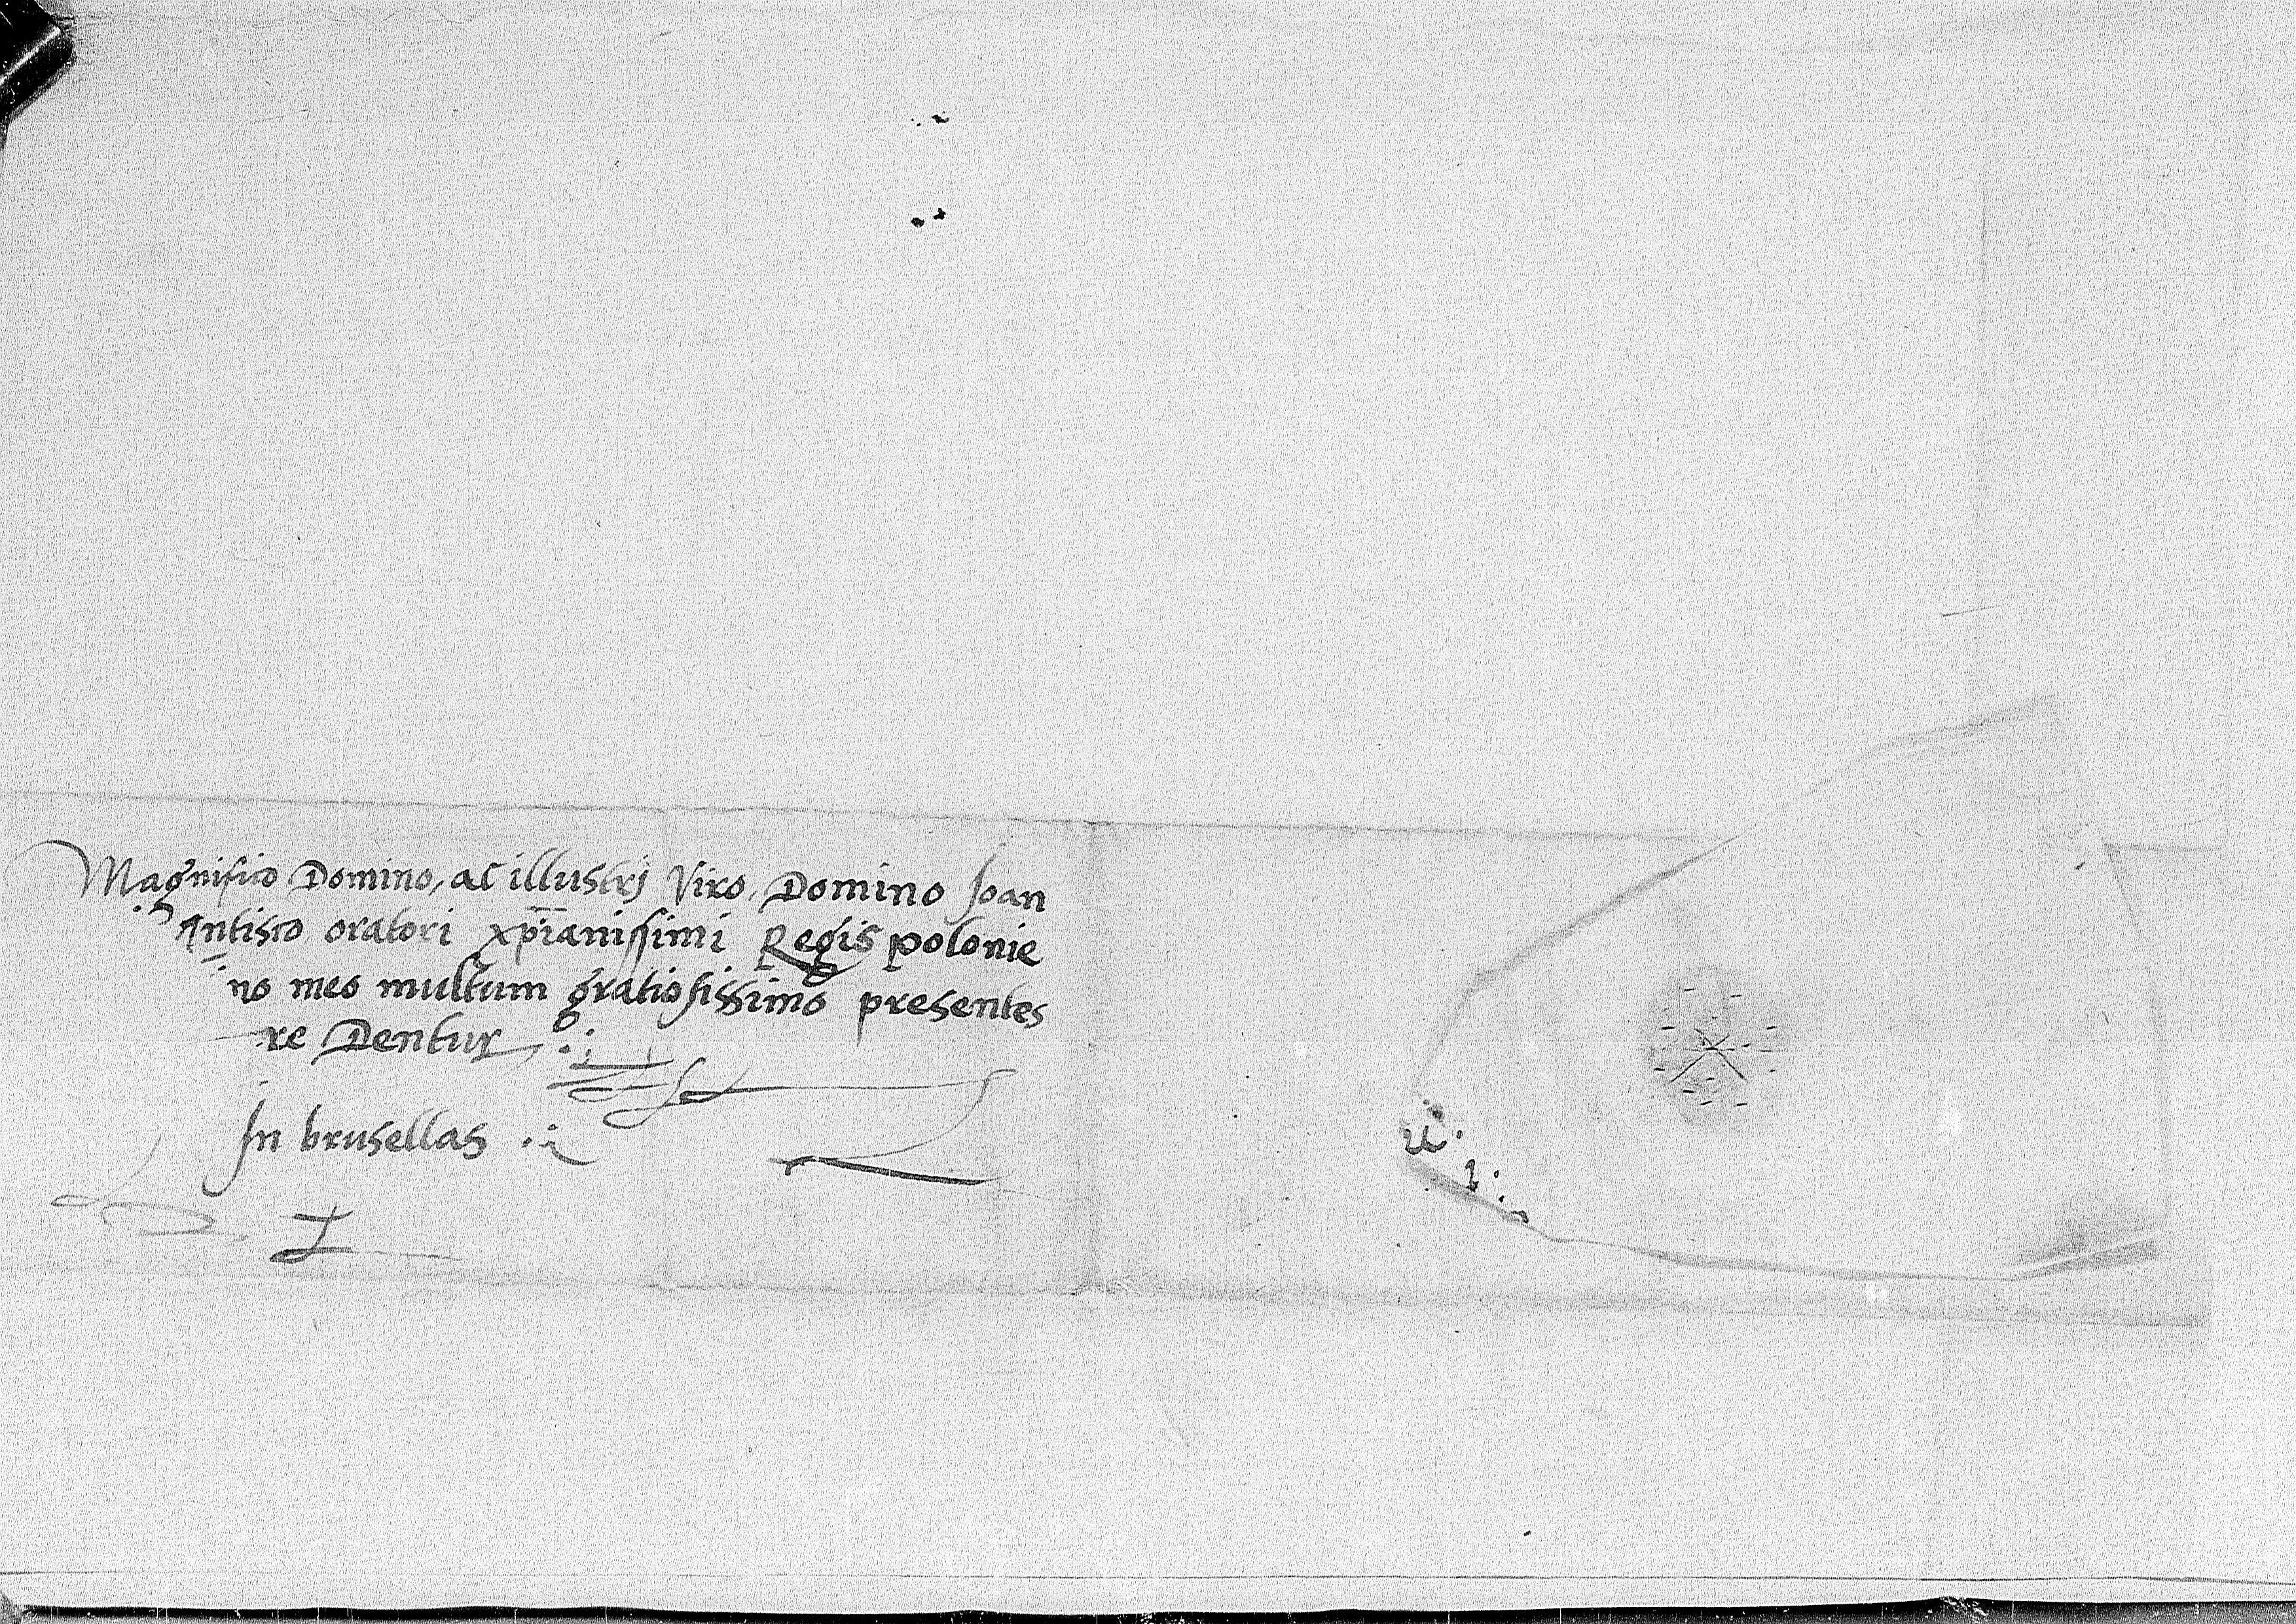 Magnifico Domino, ac illustrj Viro, Domino Joan
Antisco oratori xp̄ianissimi Regis polonie
no meo multum gratiosissimo presentes
re Dentur
In brusellas